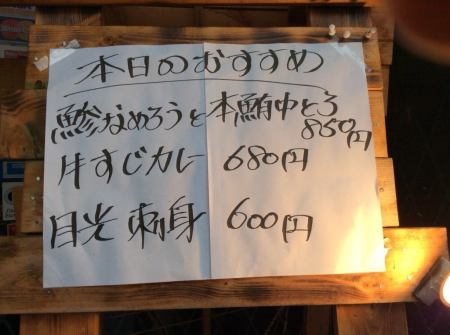 本日のおすすめ
鯵なめろうと本鮪中とろ
850円
牛すじカレー 680円
目光 刺身 600円